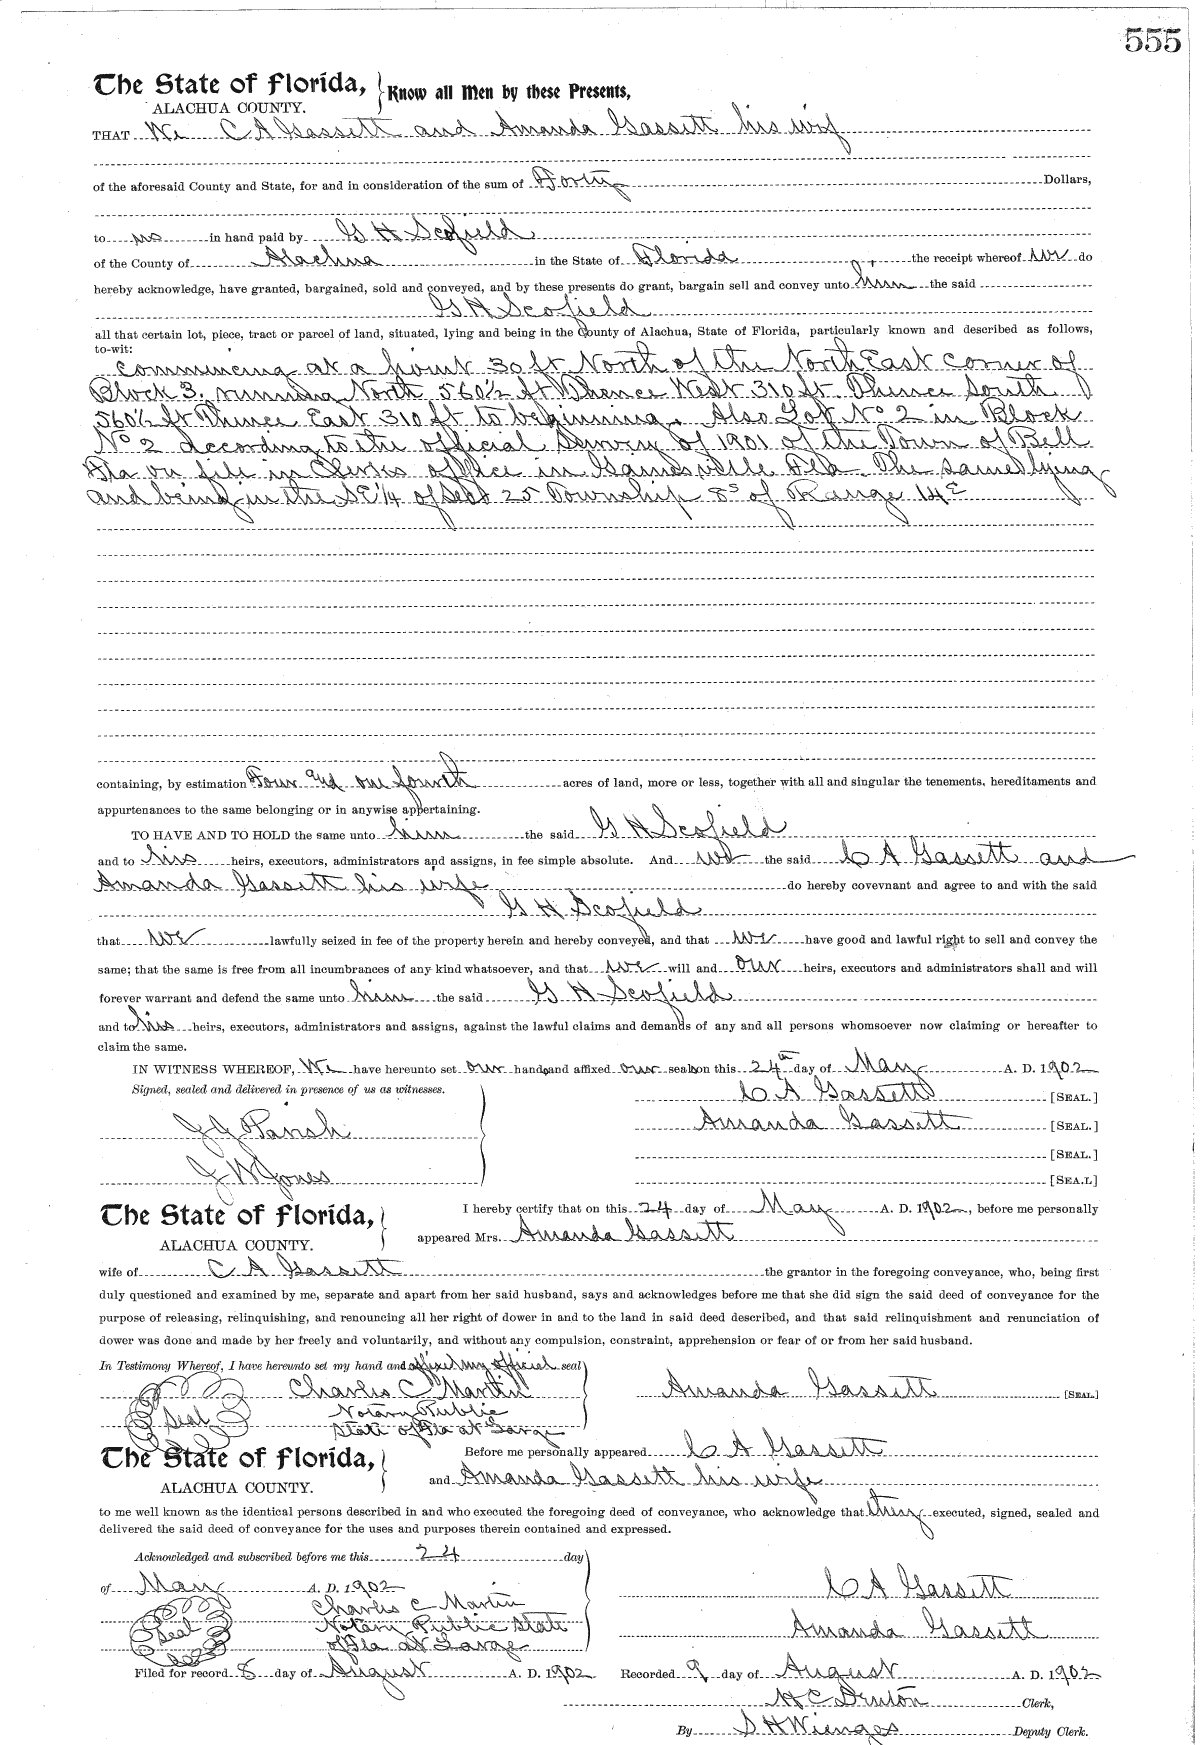 555
The State of Florida, Know all Men by these Presents,
ALACHUA COUNTY.
THAT We C A Gassett and Amanda Gassett his wif
of the aforesaid County and State, for and in consideration of the sum of Forty Dollars,
to us in hand paid by G H Scofield
of the County of Alachua in the State of Florida the receipt whereof we do
hereby acknowledge, have granted, bargained, sold and conveyed, and by these presents do grant, bargain sell and convey unto him the said
G H Scofield
all that certain lot, piece, tract or parcel of land, situated, lying and being in the County of Alachua, State of Florida, particularly known and described as follows,
to-wit:
Commencing at a point 30 ft North of the North East corner of
Block 3, running North 560½ ft Thence West 310 ft. Thence South
560½ ft Thence East 310 ft to beginning. Also Lot No 2 in Block
No 2 according to the official Survey of 1901 of the Town of Bell
Fla on file in Clerks office in Gainesville Fla. The same lying
and being in the SE 1/4 of Sect 25 Township 8S of Range 14E
containing, by estimation Four and one fourth acres of land, more or less, together with all and singular the tenements, hereditaments and
appurtenances to the same belonging or in anywise appertaining.
TO HAVE AND TO HOLD the same unto him the said G H Scofield
and to his heirs, executors, administrators and assigns, in fee simple absolute. And we the said C A Gassett and
Amanda Gassett his wife do hereby covevnant and agree to and with the said
G H Scofield
that we lawfully seized in fee of the property herein and hereby conveyed, and that we have good and lawful right to sell and convey the
same; that the same is free from all incumbrances of any kind whatsoever, and that we will and our heirs, executors and administrators shall and will
forever warrant and defend the same unto him the said G H Scofield
and to his heirs, executors, administrators and assigns, against the lawful claims and demands of any and all persons whomsoever now claiming or hereafter to
claim the same.
IN WITNESS WHEREOF, We have hereunto set our hands and affixed our seals on this 24th day of May A. D. 1902
Signed, sealed and delivered in presence of us as witnesses. C A Gassett [SEAL.]
J J Parish Amanda Gassett [SEAL.]
[SEAL.]
J W Jones [SEA.L]
The State of Florida, I hereby certify that on this 24 day of May A. D. 1902, before me personally
ALACHUA COUNTY. appeared Mrs. Amanda Gassett
wife of C A Gassett the grantor in the foregoing conveyance, who, being first
duly questioned and examined by me, separate and apart from her said husband, says and acknowledges before me that she did sign the said deed of conveyance for the
purpose of releasing, relinquishing, and renouncing all her right of dower in and to the land in said deed described, and that said relinquishment and renunciation of
dower was done and made by her freely and voluntarily, and without any compulsion, constraint, apprehension or fear of or from her said husband.
In Testimony Whereof, I have hereunto set my hand and affixed my official seal
Seal Charles C Martin Amanda Gassett [SEAL.]
Notary Public
State of Fla at Large
The State of Florida, Before me personally appeared C A Gassett
ALACHUA COUNTY. and Amanda Gassett his wife
to me well known as the identical persons described in and who executed the foregoing deed of conveyance, who acknowledge that they executed, signed, sealed and
delivered the said deed of conveyance for the uses and purposes therein contained and expressed.
Acknowledged and subscribed before me this 24 day
of May A. D. 1902 C A Gassett
Charles C Martin
Seal Notary Public State Amanda Gassett
of Fla at Large
Filed for record 8 day of August A. D. 1902 Recorded 9 day of August A. D. 1902
H C Denton Clerk,
By S H Wienges Deputy Clerk.